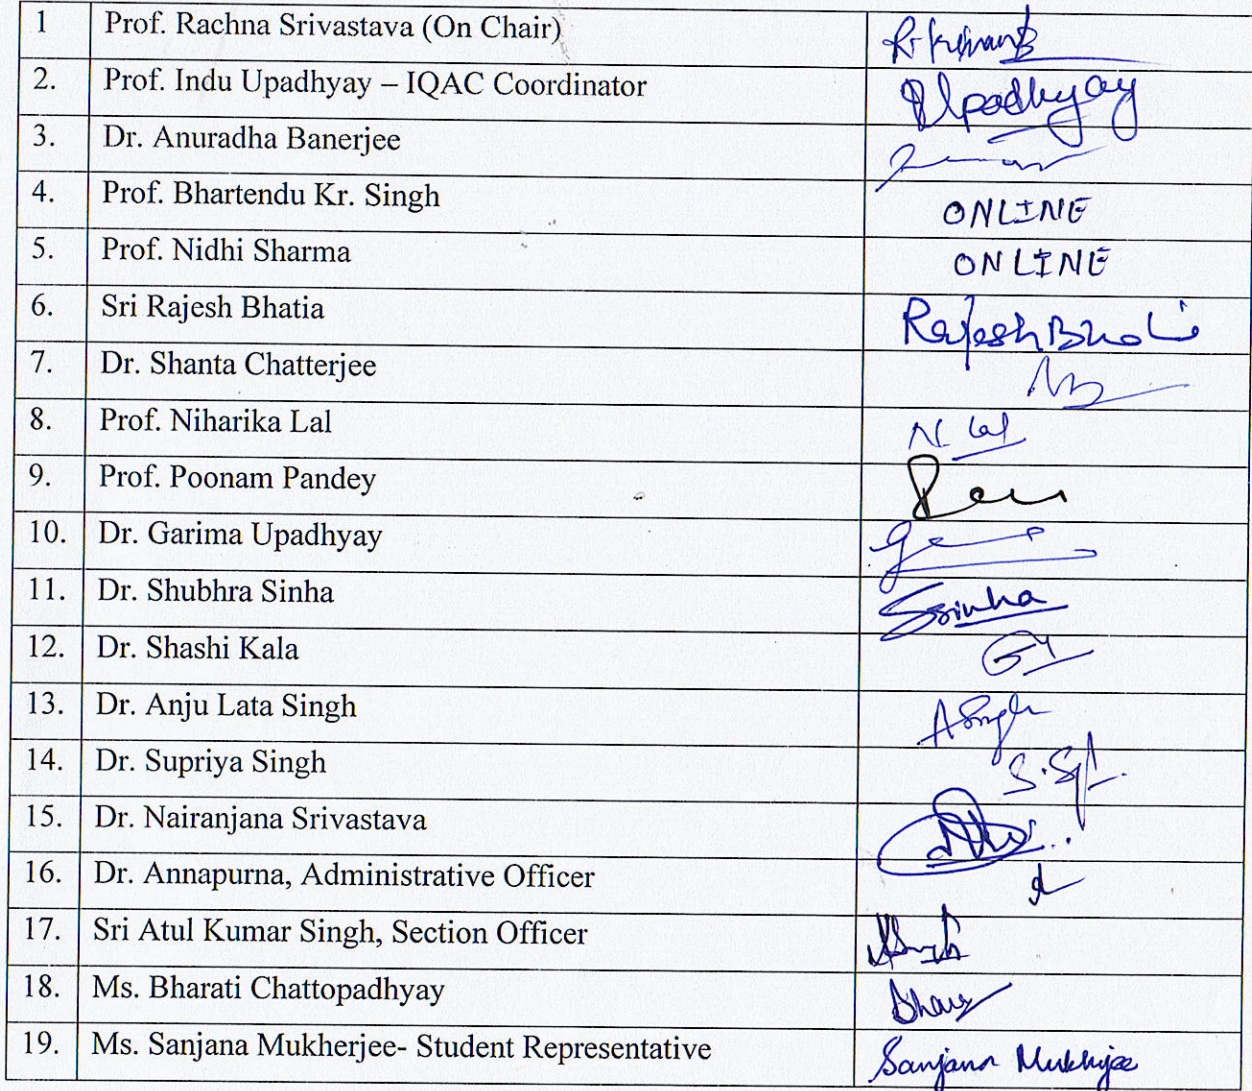 1 Prof. Rachna Srivastava (On Chair)
2. Prof. Indu Upadhyay – IQAC Coordinator Upadhyay
3. Dr. Anuradha Banerjee
4. Prof. Bhartendu Kr. Singh ONLINE
5. Prof. Nidhi Sharma ONLINE
6. Sri Rajesh Bhatia Rajesh Bhatia
7. Dr. Shanta Chatterjee
8. Prof. Niharika Lal N. Lal
9. Prof. Poonam Pandey
10. Dr. Garima Upadhyay
11. Dr. Shubhra Sinha SSinha
12. Dr. Shashi Kala
13. Dr. Anju Lata Singh ASingh
14. Dr. Supriya Singh
15. Dr. Nairanjana Srivastava
16. Dr. Annapurna, Administrative Officer
17. Sri Atul Kumar Singh, Section Officer
18. Ms. Bharati Chattopadhyay
19. Ms. Sanjana Mukherjee- Student Representative Sanjana Mukherjee